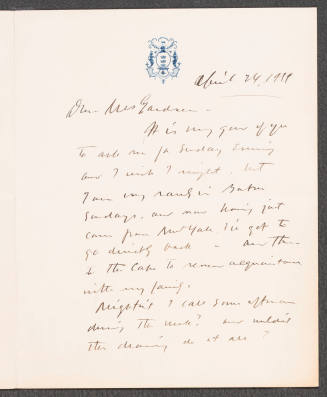 April 24, 19
Dear Mrs Gardner -
It is very good of you
to ask me for Sunday evening
and I wish I might. but
I am very rarely in Boston
Sundays. and now having just
come from New York I've got to
go directly back - and then
to the Cape to renew acquaintance
with my family.
Mightn't I call some afternoon
during the week? and wouldn't
the drawing do it all?